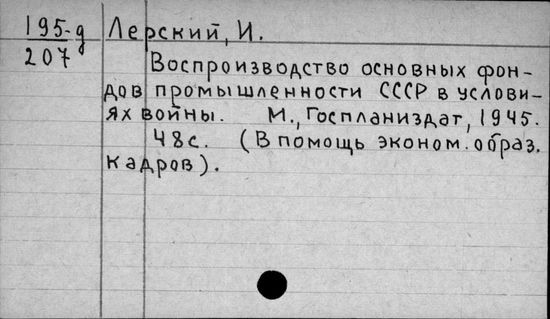 195-д Лерский, И.
207
Воспроизводство основных фон-
дов промышленности СССР в услови-
ях войны. М., Госпланиздат, 1945.
48с. (В помощь эконом. образ.
кадров).